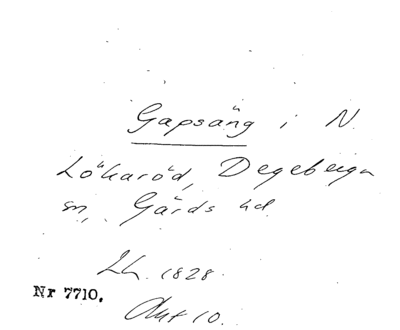 Gapsäng i N.
Lökaröd, Degeberga
sn, Gärds hd.
Lh. 1828.
Nr 7710.
Akt 10.